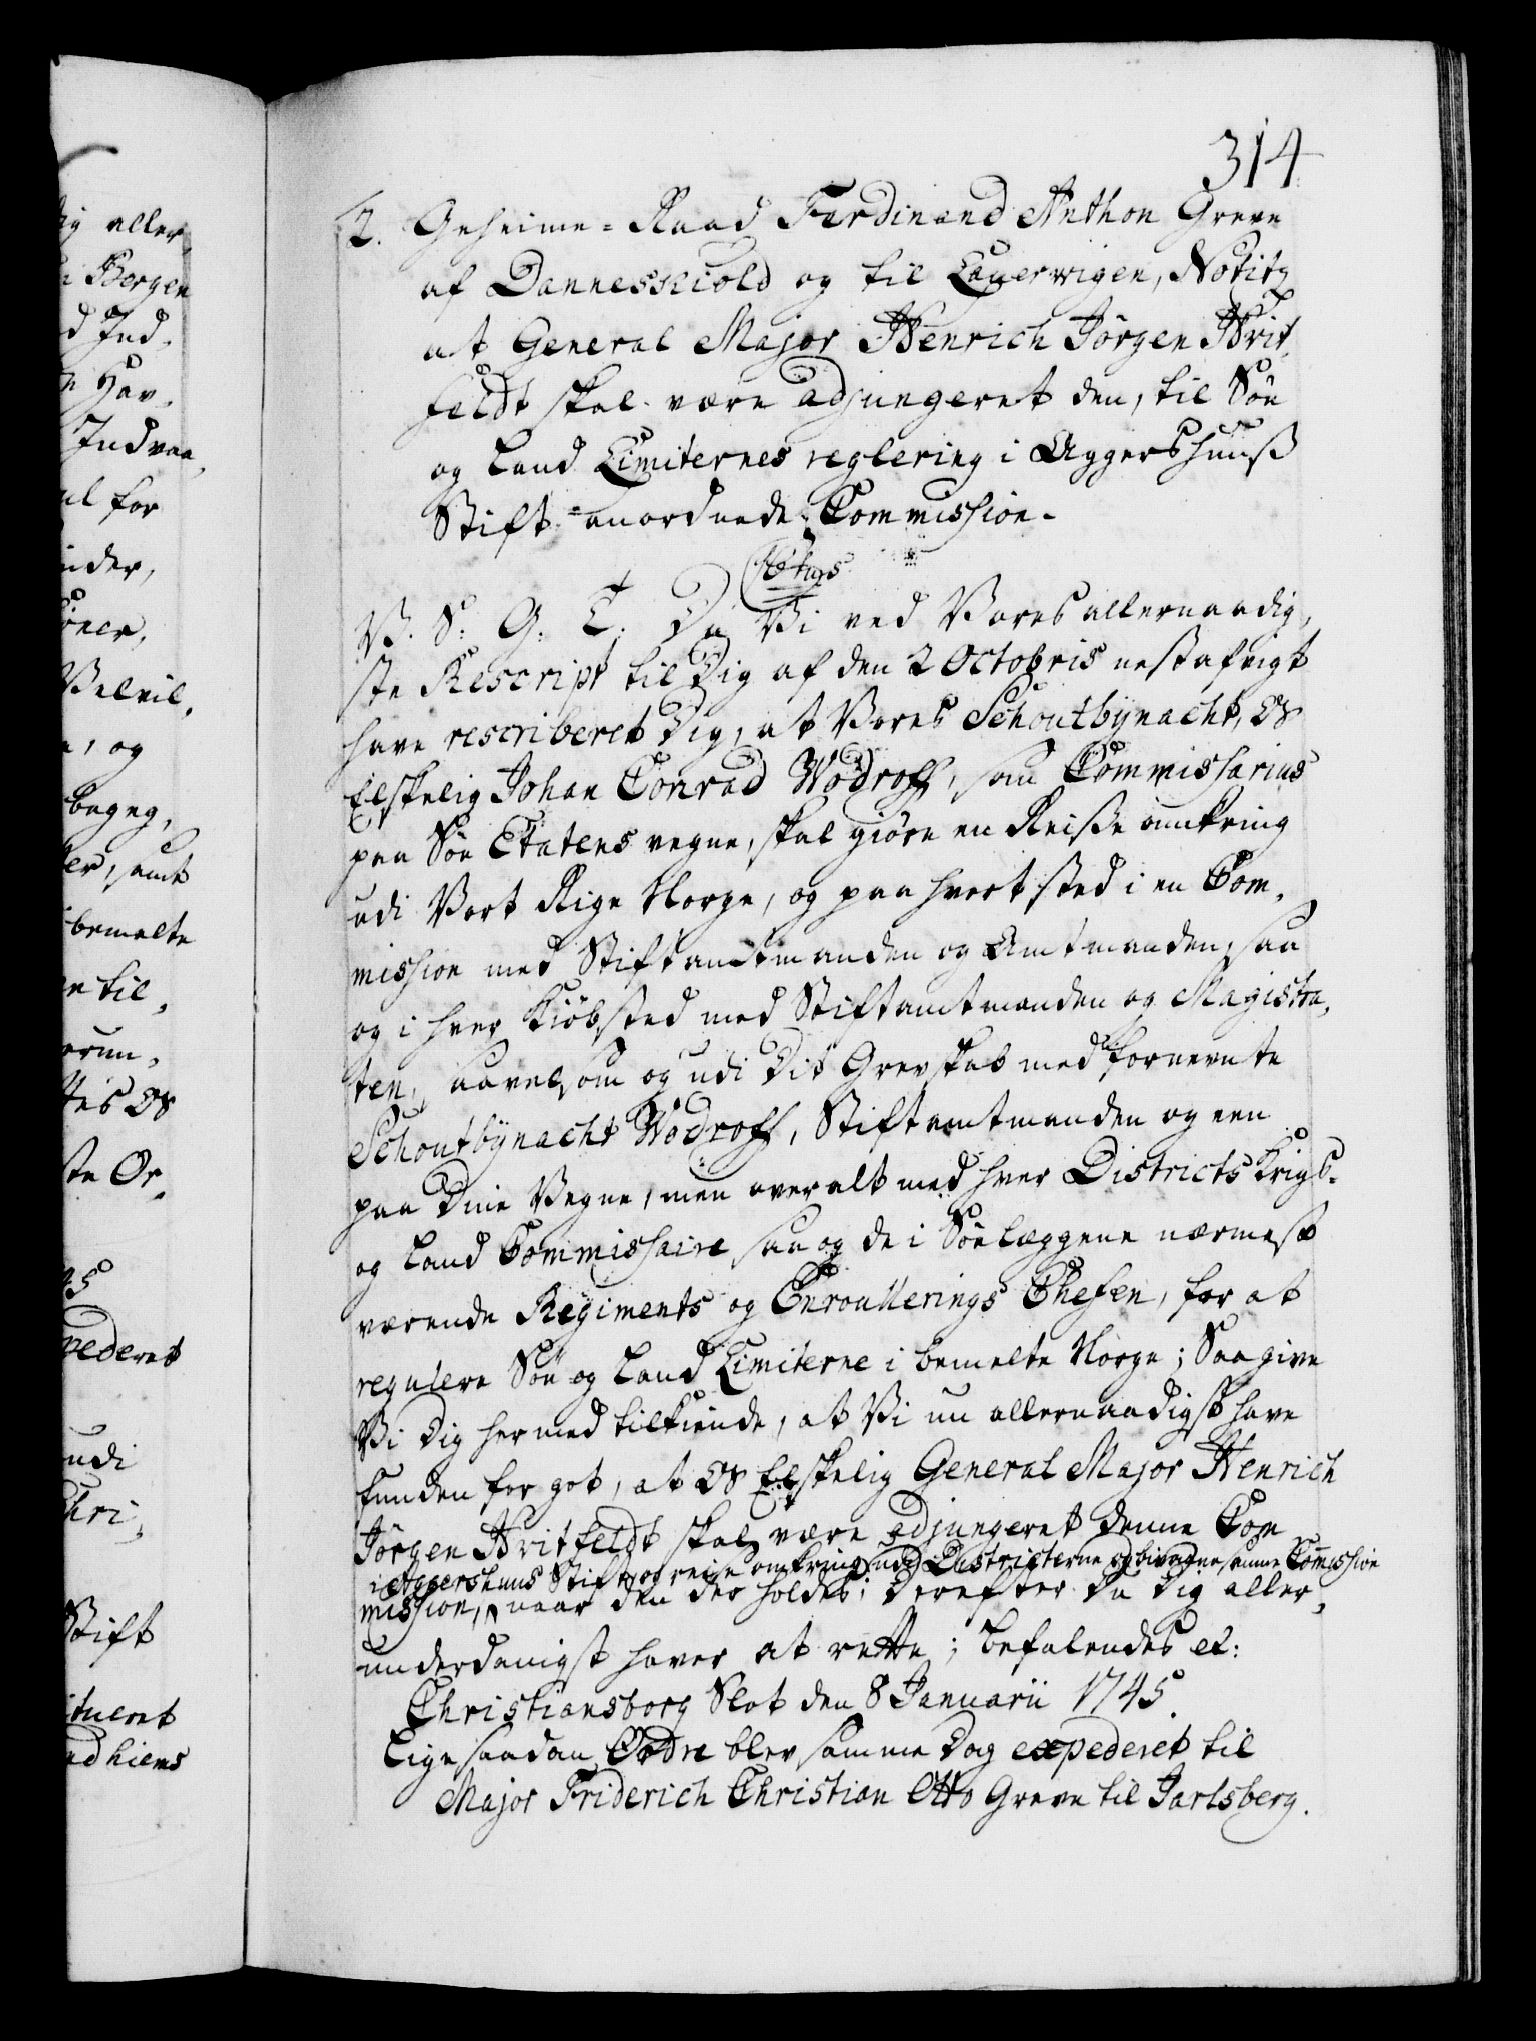 314
2. Geheime-Raad Ferdinand Anthon Greve
af Dannesskiold og til Laugerwigen, Notitz
at General Major Henrich Jørgen Hvit-
feldt skal være adjungeret den, til Søe
og Land Limiternes reglering i Aggershuuß
Stift anordnede Commission.
V. S. G. T. Da Vi ved Vores allernaadig-
ste Rescript til Dig af den 2 Octobris nestafvigt
have rescriberet Dig, at Vores Schoutbynacht, Os
Elskelig Johan Conrad Wodroff, som Commissarius
paa Søe Etatens vegne, skal giøre en Reiße omkring
udi Vort Rige Norge, og paa hvert sted i en Com-
mission med Stiftamtmanden og Amtmanden, saa
og i hver Kiøbsted med Stiftamtmanden og Magistra-
ten, saavelsom og udi Dit Grevskab med fornevnte
Schoutbynacht Wodroff, Stiftamtmanden og een
paa Dine Vegne, men overalt med hver Districts Krigs-
og Land Commissaire, saa og de i Søelæggene nærmest
værende Regiments og Enroullerings Chefen, for at
regulere Søe og Land Limiterne i bemelte Norge; Saa give
Vi Dig hermed tilkiende, at Vi nu allernaadigst have
funden for got, at Os Elskelig General Major Henrich
Jørgen Hvitfeldt skal være adjungeret denne Com
i Aggershuus Stift, og reise omkring udi Districterne og bivaane samme Commission
mission, naar den der holdes; Derefter Du Dig aller-
underdanigst haver at rette; Befalendes et:
Christiansborg Slot den 8 Januarii 1745.
Lige saadan Ordre blev samme Dag expederet til
Major Friderich Christian Otto Greve til Jarlsberg.